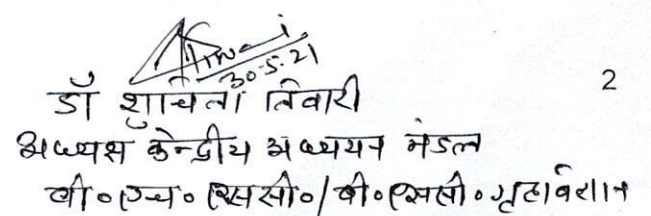 Tiwari
30-5-21
2
डॉ शुचिता तिवारी
अध्यक्ष केन्द्रीय अध्ययन मंडल
बी०एच०एससी०/बी०एससी०गृहविज्ञान